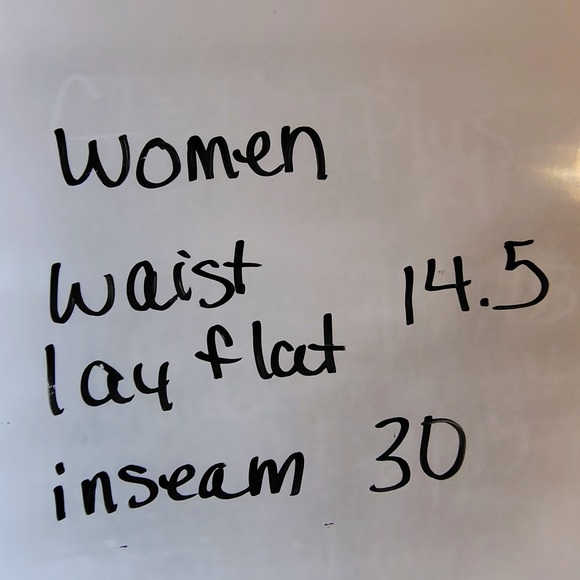 Women
waist 14.5
lay flat
inseam 30